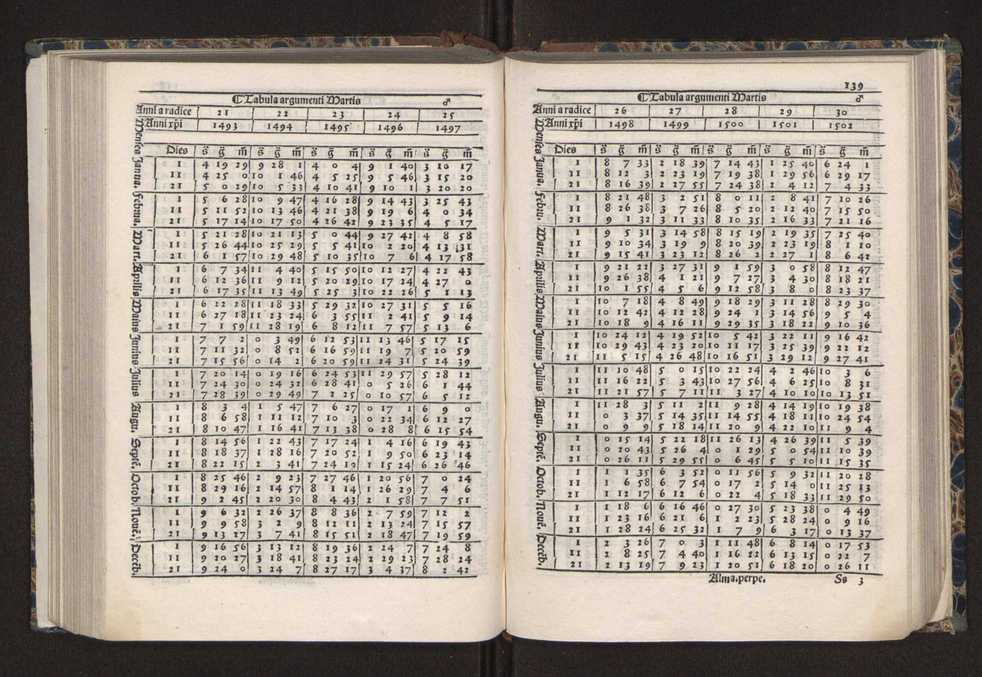 ☾ Tabula argumenti Martis ♂
Anni a radice | 21 | 22 | 23 | 24 | 25
Anni xp̄i | 1493 | 1494 | 1495 | 1496 | 1497
Menses | Dies | s̄ ḡ m̄ | s̄ ḡ m̄ | s̄ ḡ m̄ | s̄ ḡ m̄ | s̄ ḡ m̄
Janua. | 1 | 4 19 29 | 9 28 1 | 4 0 4 | 9 1 40 | 3 10 17
11 | 4 25 0 | 10 1 46 | 4 5 25 | 9 5 46 | 3 15 20
21 | 5 0 29 | 10 5 33 | 4 10 41 | 9 10 1 | 3 20 20
Februa. | 1 | 5 6 28 | 10 9 47 | 4 16 28 | 9 14 43 | 3 25 43
11 | 5 11 52 | 10 13 46 | 4 21 38 | 9 19 6 | 4 0 34
21 | 5 17 14 | 10 17 50 | 4 26 42 | 9 23 35 | 4 5 17
Mart. | 1 | 5 21 28 | 10 21 13 | 5 0 44 | 9 27 42 | 4 8 58
11 | 5 26 44 | 10 25 29 | 5 5 41 | 10 2 20 | 4 13 31
21 | 6 1 57 | 10 29 48 | 5 10 35 | 10 7 6 | 4 17 58
Aprilis | 1 | 6 7 34 | 11 4 40 | 5 15 50 | 10 12 27 | 4 22 43
11 | 6 12 36 | 11 9 12 | 5 20 29 | 10 17 24 | 4 27 0
21 | 6 17 35 | 11 13 49 | 5 25 3 | 10 22 26 | 5 1 13
Maius | 1 | 6 22 28 | 11 18 33 | 5 29 32 | 10 27 31 | 5 5 16
11 | 6 27 18 | 11 23 24 | 6 3 55 | 11 2 41 | 5 9 14
21 | 7 1 59 | 11 28 19 | 6 8 12 | 11 7 57 | 5 13 6
Junius | 1 | 7 7 2 | 0 3 49 | 6 12 53 | 11 13 46 | 5 17 15
11 | 7 11 32 | 0 8 52 | 6 16 59 | 11 19 7 | 5 20 59
21 | 7 15 56 | 0 14 2 | 6 20 59 | 11 24 31 | 5 24 39
Julius | 1 | 7 20 14 | 0 19 16 | 6 24 53 | 11 29 57 | 5 28 12
11 | 7 24 30 | 0 24 32 | 6 28 41 | 0 5 26 | 6 1 44
21 | 7 28 39 | 0 29 49 | 7 2 25 | 0 10 57 | 6 5 12
Augu. | 1 | 8 3 4 | 1 5 47 | 7 6 27 | 0 17 1 | 6 9 0
11 | 8 6 58 | 1 11 12 | 7 10 3 | 0 22 34 | 6 12 27
21 | 8 10 47 | 1 16 41 | 7 13 38 | 0 28 8 | 6 15 54
Septē. | 1 | 8 14 56 | 1 22 43 | 7 17 24 | 1 4 16 | 6 19 43
11 | 8 18 37 | 1 28 16 | 7 20 52 | 1 9 50 | 6 23 14
21 | 8 22 15 | 2 3 41 | 7 24 19 | 1 15 24 | 6 26 46
Octob. | 1 | 8 25 46 | 2 9 23 | 7 27 46 | 1 20 56 | 7 0 24
11 | 8 29 16 | 2 14 57 | 8 1 14 | 1 26 29 | 7 4 6
21 | 9 2 45 | 2 20 30 | 8 4 43 | 2 1 58 | 7 7 51
Nouē. | 1 | 9 6 32 | 2 26 37 | 8 8 36 | 2 7 59 | 7 12 2
11 | 9 9 58 | 3 2 9 | 8 12 11 | 2 13 24 | 7 15 57
21 | 9 13 27 | 3 7 41 | 8 15 51 | 2 18 47 | 7 19 59
Decēb. | 1 | 9 16 56 | 3 13 12 | 8 19 36 | 2 24 7 | 7 24 8
11 | 9 20 27 | 3 18 41 | 8 23 24 | 2 29 23 | 7 28 24
21 | 9 24 0 | 3 24 7 | 8 27 17 | 3 4 37 | 8 2 42
139
☾ Tabula argumenti Martis ♂
Anni a radice | 26 | 27 | 28 | 29 | 30
Anni xp̄i | 1498 | 1499 | 1500 | 1501 | 1502
Menses | Dies | s̄ ḡ m̄ | s̄ ḡ m̄ | s̄ ḡ m̄ | s̄ ḡ m̄ | s̄ ḡ m̄
Janua. | 1 | 8 7 33 | 2 18 39 | 7 14 43 | 1 25 40 | 6 24 1
11 | 8 12 3 | 2 23 19 | 7 19 38 | 1 29 56 | 6 29 17
21 | 8 16 39 | 2 27 55 | 7 24 38 | 2 4 12 | 7 4 33
Febru. | 1 | 8 21 48 | 3 2 51 | 8 0 11 | 2 8 41 | 7 10 26
11 | 8 26 38 | 3 7 26 | 8 5 20 | 2 12 40 | 7 15 50
21 | 9 1 32 | 3 11 33 | 8 10 35 | 2 16 33 | 7 21 16
Mart. | 1 | 9 5 31 | 3 14 58 | 8 15 19 | 2 19 35 | 7 25 40
11 | 9 10 34 | 3 19 9 | 8 20 39 | 2 23 19 | 8 1 10
21 | 9 15 41 | 3 23 12 | 8 26 2 | 2 27 1 | 8 6 41
Aprilis | 1 | 9 21 21 | 3 27 31 | 9 1 59 | 3 0 58 | 8 12 47
11 | 9 26 38 | 4 1 21 | 9 7 27 | 3 4 30 | 8 18 21
21 | 10 1 55 | 4 5 6 | 9 12 58 | 3 8 0 | 8 23 37
Maius | 1 | 10 7 18 | 4 8 49 | 9 18 29 | 3 11 28 | 8 29 30
11 | 10 12 42 | 4 12 28 | 9 24 1 | 3 14 56 | 9 5 4
21 | 10 18 9 | 4 16 11 | 9 29 35 | 3 18 22 | 9 10 36
Junius | 1 | 10 24 12 | 4 19 52 | 10 5 41 | 3 22 11 | 9 16 42
11 | 10 29 43 | 4 23 20 | 10 11 17 | 3 25 39 | 9 22 12
21 | 11 5 15 | 4 26 48 | 10 16 51 | 3 29 12 | 9 27 41
Julius | 1 | 11 10 48 | 5 0 15 | 10 22 24 | 4 2 46 | 10 3 6
11 | 11 16 22 | 5 3 43 | 10 27 56 | 4 6 25 | 10 8 31
21 | 11 21 57 | 5 7 11 | 11 3 27 | 4 10 10 | 10 13 51
Augu. | 1 | 11 28 3 | 5 11 2 | 11 9 28 | 4 14 19 | 10 19 38
11 | 0 3 37 | 5 14 35 | 11 14 55 | 4 18 11 | 10 24 54
21 | 0 9 9 | 5 18 14 | 11 20 9 | 4 22 10 | 11 9 4
Septē. | 1 | 0 15 14 | 5 22 18 | 11 26 13 | 4 26 39 | 11 5 39
11 | 0 20 43 | 5 26 4 | 0 1 29 | 5 0 54 | 11 10 39
21 | 0 26 11 | 5 29 55 | 0 6 45 | 5 5 10 | 11 15 35
Octob. | 1 | 1 1 35 | 6 3 52 | 0 11 56 | 5 9 32 | 11 20 28
11 | 1 6 58 | 6 7 54 | 0 17 2 | 5 14 0 | 11 25 13
21 | 1 12 17 | 6 12 6 | 0 22 4 | 5 18 33 | 11 29 50
Nouē. | 1 | 1 18 6 | 6 16 46 | 0 27 30 | 5 23 38 | 0 4 49
11 | 1 23 16 | 6 21 6 | 1 2 23 | 5 28 24 | 0 9 16
21 | 1 28 24 | 6 25 32 | 1 7 9 | 6 3 17 | 0 13 37
Decēb. | 1 | 2 3 26 | 7 0 3 | 1 11 48 | 6 8 14 | 0 17 53
11 | 2 8 25 | 7 4 40 | 1 16 22 | 6 13 15 | 0 22 7
21 | 2 13 19 | 7 9 23 | 1 20 51 | 6 18 20 | 0 26 11
Alma. perpe. Ss 3